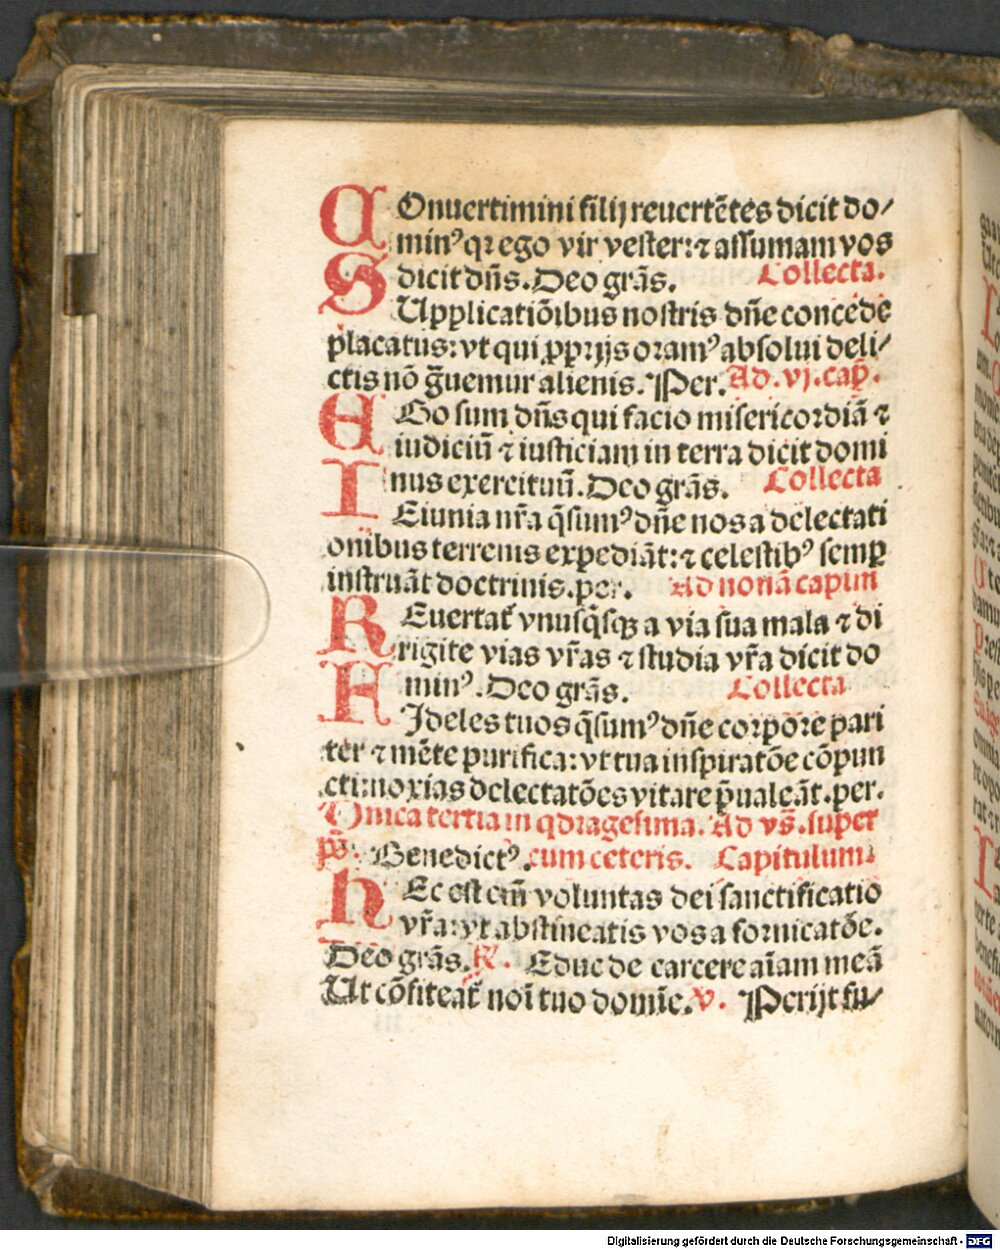 COnuertimini filij reuertẽtes dicit do/
minꝰ qꝛ ego vir vester: ⁊ assumam vos
dicit dñs. Deo grãs. Collecta.
SUpplicatiõibus nostris dñe concede
placatus: vt qui ꝓprijs oramꝰ absolui deli/
ctis nõ g̃uemur alienis. Per. Ad .vj. cap̃.
EGo sum dñs qui facio misericordiã ⁊
iudiciũ ⁊ iusticiam in terra dicit domi
nus exercituũ. Deo grãs. Collecta
IEiunia nr̃a q̃sumꝰ dñe nos a delectati
onibus terrenis expediãt: ⁊ celestibꝰ semꝑ
instruãt doctrinis. per. Ad nonã capitu
REuertat᷑ vnusq̃sqꝫ a via sua mala ⁊ di
rigite vias vr̃as ⁊ studia vr̃a dicit do
minꝰ. Deo grãs. Collecta
FIdeles tuos q̃sumꝰ dñe corpore pari
ter ⁊ mẽte purifica: vt tua inspiratõe cõpun
cti: noxias delectatões vitare p̃ualeãt. per.
Dnica tertia in qdragesima. Ad vs̃. super
ps̃. Benedictꝰ. cum ceteris. Capitulum
HEc est em̃ voluntas dei sanctificatio
vr̃a: vt abstineatis vos a fornicatõe.
Deo grãs. R. Educ de carcere aĩam meã
Ut cõfiteat᷑ noĩ tuo domĩe. V. Perijt fu/
Digitalisierung gefördert durch die Deutsche Forschungsgemeinschaft - DFG